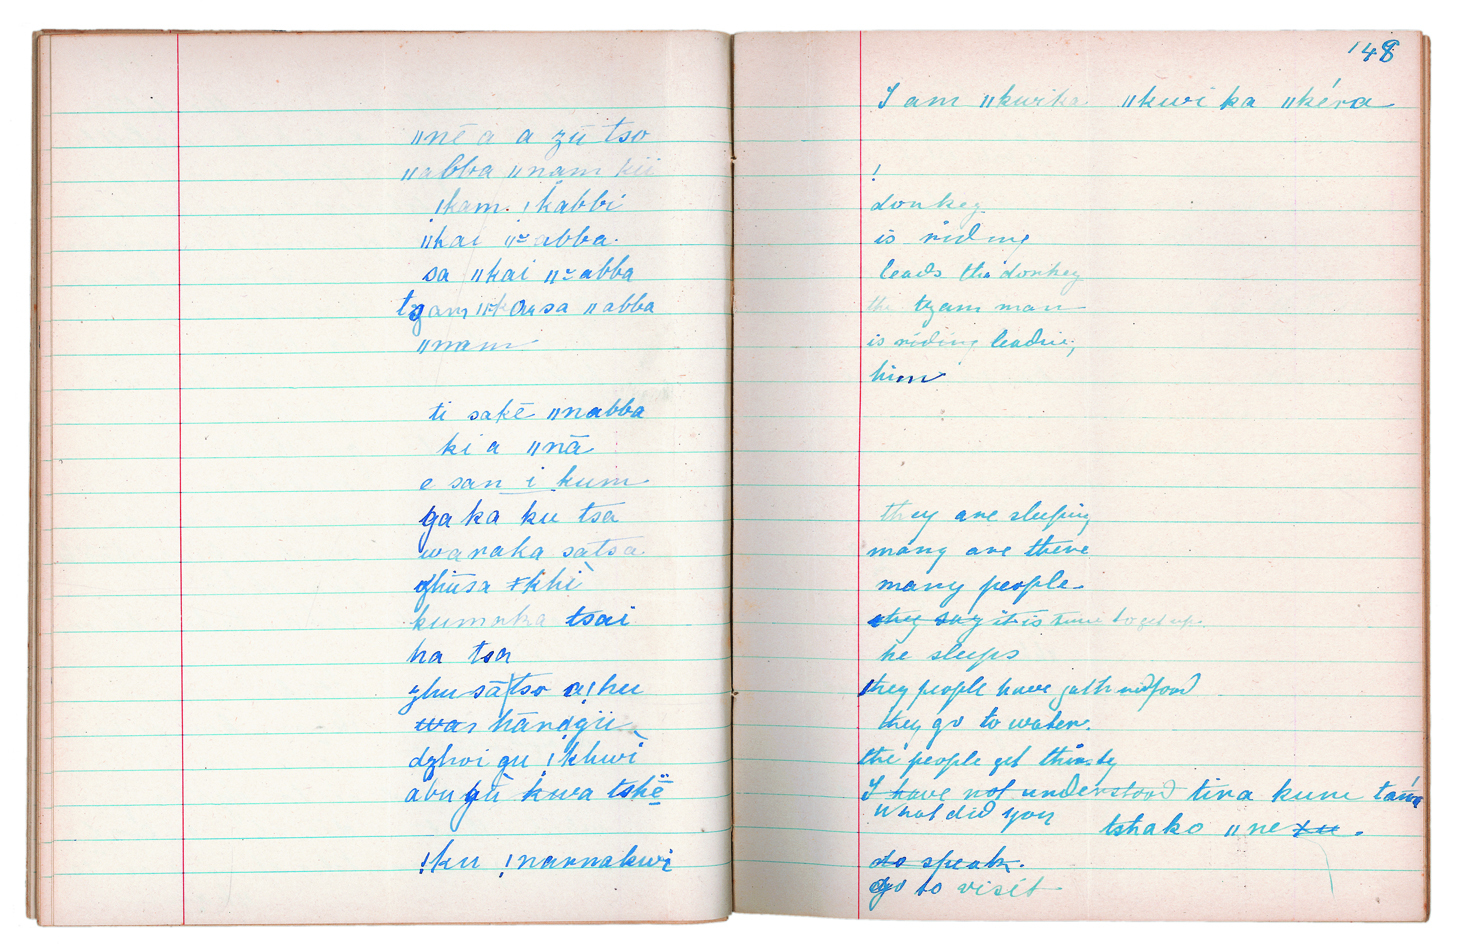 ǁnē a a zū tso
ǁabba ǁnam kii
ǃkam. ǃkabbi
ǁhai ǁ abba.
sa ǁkai ǁ abba
sa ǁabba
ǁnam
ti sakē ǁnabba
ki a ǁnā
e san i kum
gaka ku tsa
waraka satsa.
ǂkhi
tsai
ha tsa
zhu sā tso a ǃhu
dzhoi gu ǃkhwì
kwa
ǃku ǃnarnakwi
148
I am ǁkwika ǁkwi ka ǁkéra
!
donkey
is riding
leads the donkey
the tzam man
is riding leading
him
they are sleeping
many are there
many people
they say it is time to get up.
he sleeps
they people have gathered food
they go to water.
the people get thirsty
I have not understood tira kum
What did you
tshako ǁne
do speak.
go to visit